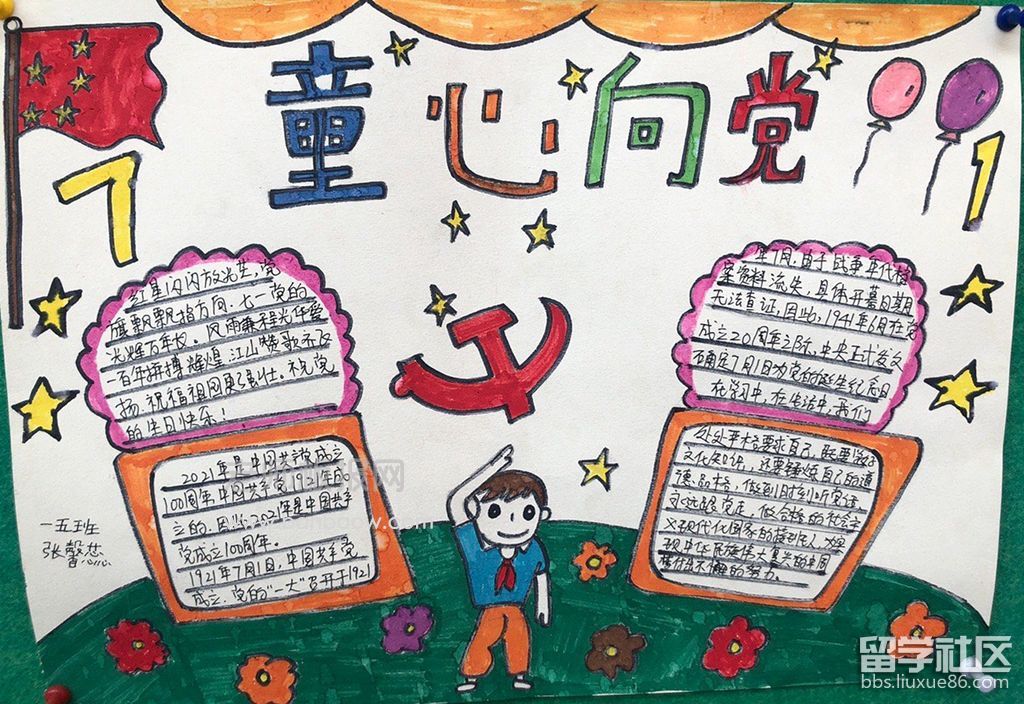 童心向党
7
1
红星闪闪放光芒,党
旗飘飘指方向.七一党的
光辉万年长.风雨兼程光怀爱
百年拼搏辉煌,江山赞歌永飞
扬.祝福祖国更强壮,祝党
的生日快乐!
年7月.由于战争年代档
案资料流失,具体开幕日期
无法查证,因此,1941年6月在党
成立20周年之际,中央正式发文
确定7月1日为党的诞生纪念日
在学习中,在生活中,我们
2021年是中国共产党成立
100周年.中国共产党1921年成
立的.因此2021年是中国共产
党成立100周年.
1921年7月1日,中国共产党
成立.党的"一大"召开于1921
处处严格要求自己,既要学好
文化知识,还要锤炼自己的道
德品格,做到时刻听党话,
永远跟党走,做合格的社会主
义现代化国家的接班人,为实
现中华民族伟大复兴的中国
不懈的努力.
一五班
张馨
留学社区
bbs.liuxue86.com